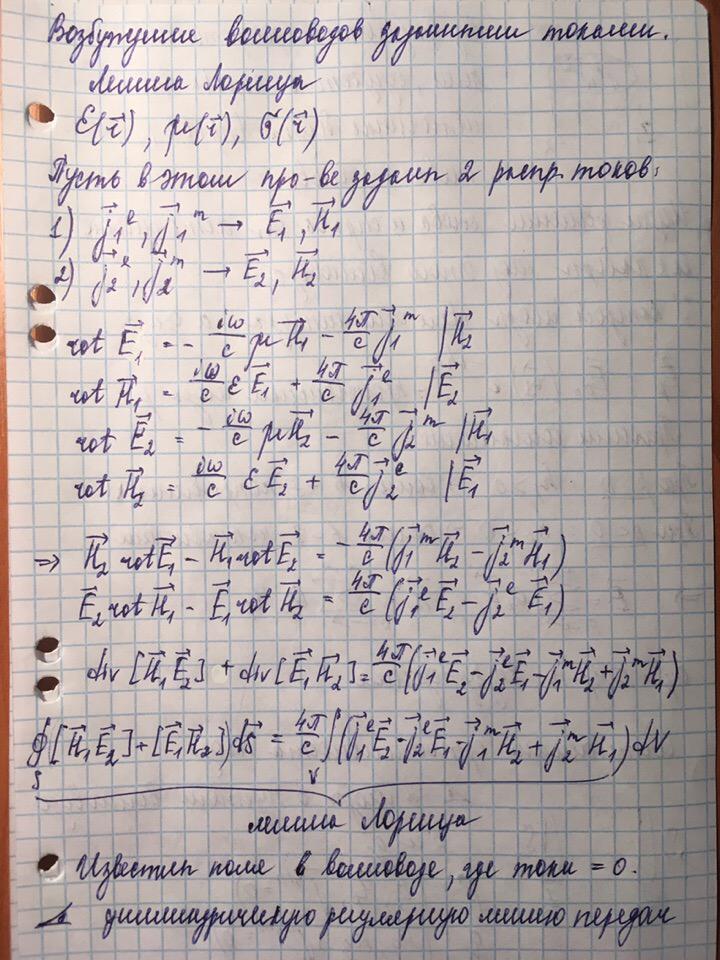 Возбуждение волноводов заданными токами.
Лемма Лоренца
ε(r⃗), μ(r⃗), σ(r⃗)
Пусть в этом про-ве заданы 2 распр. токов:
1) j⃗₁ᵉ, j⃗₁ᵐ → E⃗₁, H⃗₁
2) j⃗₂ᵉ, j⃗₂ᵐ → E⃗₂, H⃗₂
rot E⃗₁ = - iω/c μH⃗₁ - 4π/c j⃗₁ᵐ |H⃗₂
rot H⃗₁ = iω/c εE⃗₁ + 4π/c j⃗₁ᵉ |E⃗₂
rot E⃗₂ = - iω/c μH⃗₂ - 4π/c j⃗₂ᵐ |H⃗₁
rot H⃗₂ = iω/c εE⃗₂ + 4π/c j⃗₂ᵉ |E⃗₁
⇒ H⃗₂ rot E⃗₁ - H⃗₁ rot E⃗₂ = -4π/c (j⃗₁ᵐ H⃗₂ - j⃗₂ᵐ H⃗₁)
E⃗₂ rot H⃗₁ - E⃗₁ rot H⃗₂ = 4π/c (j⃗₁ᵉ E⃗₂ - j⃗₂ᵉ E⃗₁)
div [H⃗₁E⃗₂] + div [E⃗₁H⃗₂] = 4π/c (j⃗₁ᵉE⃗₂ - j⃗₂ᵉE⃗₁ - j⃗₁ᵐH⃗₂ + j⃗₂ᵐH⃗₁)
∮_S [H⃗₁E⃗₂] + [E⃗₁H⃗₂]) dS⃗ = 4π/c ∫_V (j⃗₁ᵉE⃗₂ - j⃗₂ᵉE⃗₁ - j⃗₁ᵐH⃗₂ + j⃗₂ᵐH⃗₁) dV
лемма Лоренца
Известны поля в волноводе, где токи = 0.
цилиндрическую регулярную линию передач